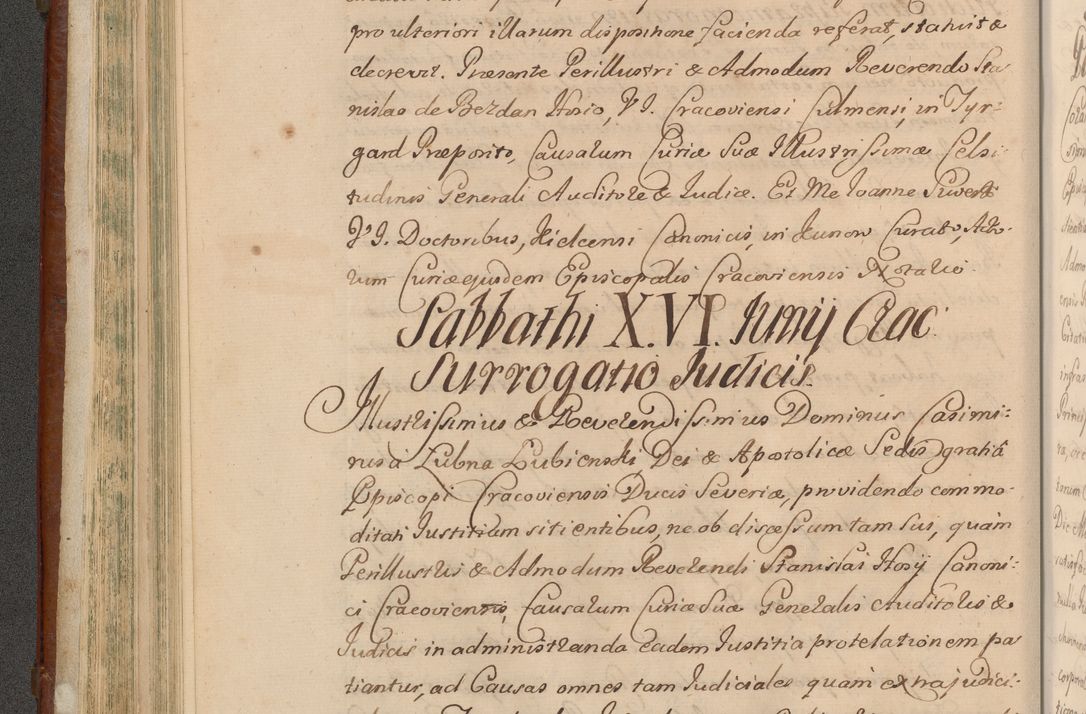 pro ulteriori illarum dispositione facienda referat, statuit &
decrevit. Præsente Perillustri & Admodum Reverendo Sta
nislao de Bezdan Hosio, V I. Cracoviensi Culmensi, in Tyr-
gard Præposito, Causarum Curiæ Suæ Illustrissimæ Celsi
tudinis Generali Auditore & Iudice. Et Me Ioanne
V I. Doctoribus, Kielcensi Canonicis, in Kunow Curato, Acto-
rum Curiæ ejusdem Episcopalis Cracoviensis Notario
Sabbathi X.VI. Junij Crac:
Surrogatio Judicis.
Illustrissimus & Reverendissimus Dominus Casimi-
rus a Łubna Łubienski Dei & Apostolicæ Sedis gratiâ
Episcopi Cracoviensis Ducis Severiæ, providendo commo-
ditati Justitiam sitientibus, ne ob discessum tam sui, quàm
Perillustris & Admodum Reverendi Stanislai Hosij Canoni-
ci Cracoviensis, Causarum Curiæ Suæ Generalis Auditoris &
Judicis in administranda eadem Justitia protelationem pa
tiantur, ad Causas omnes tam Judiciales quam extrajudici-